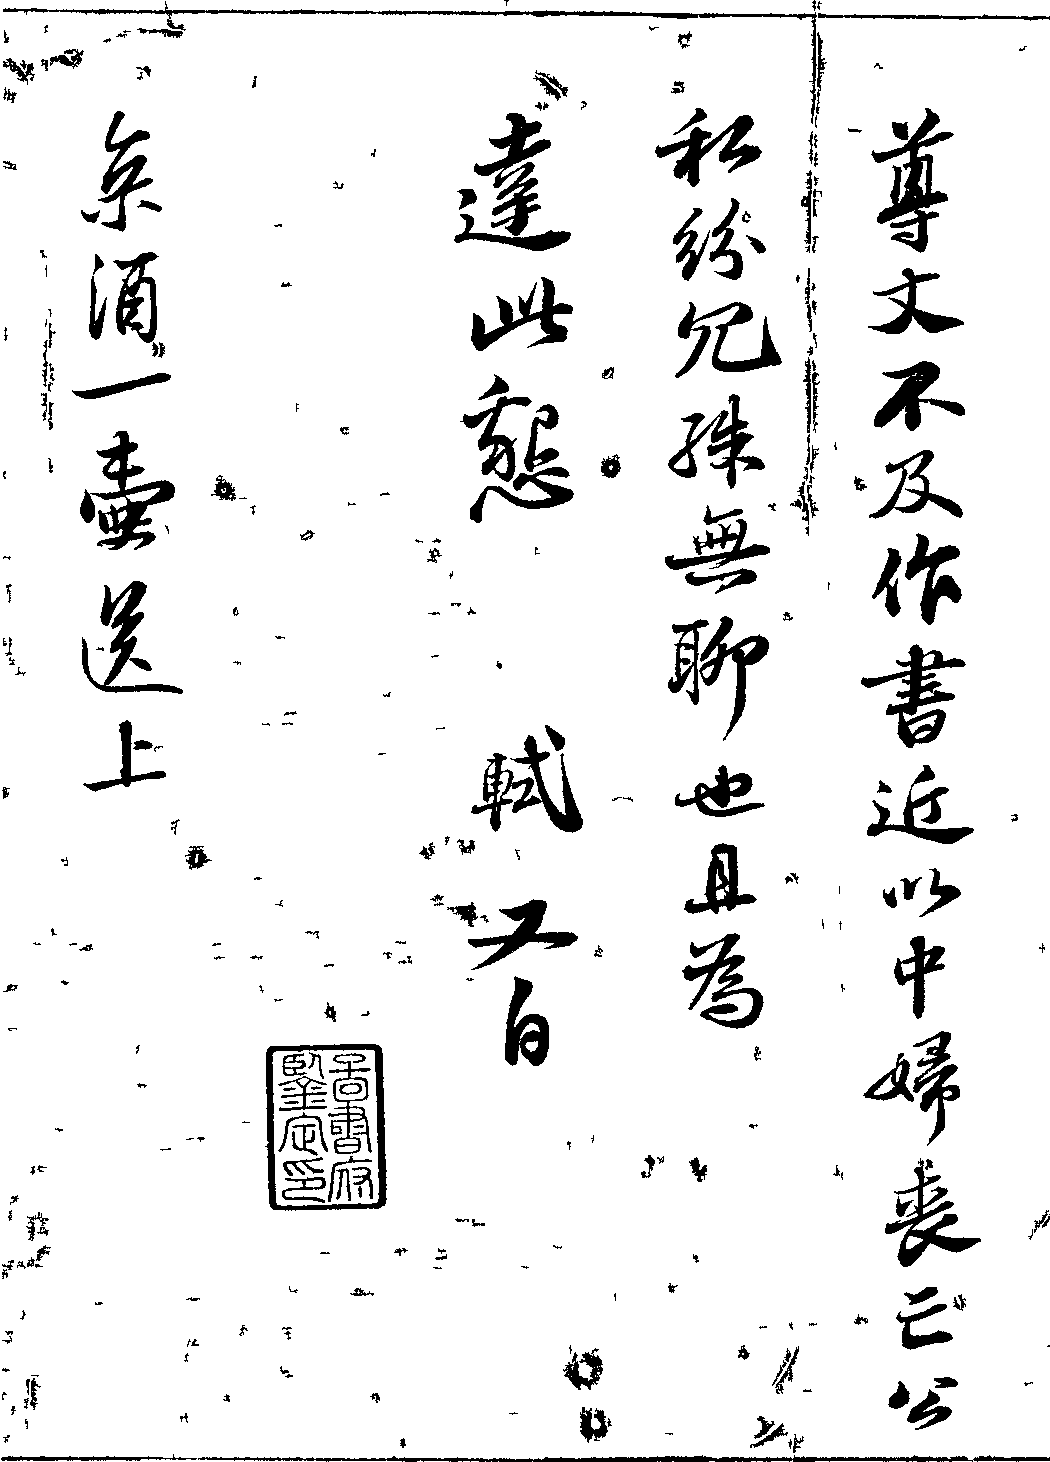 尊丈不及作書近以中婦喪亡公
私紛冗殊無聊也且為
達此懇 軾又白
京酒一壺送上